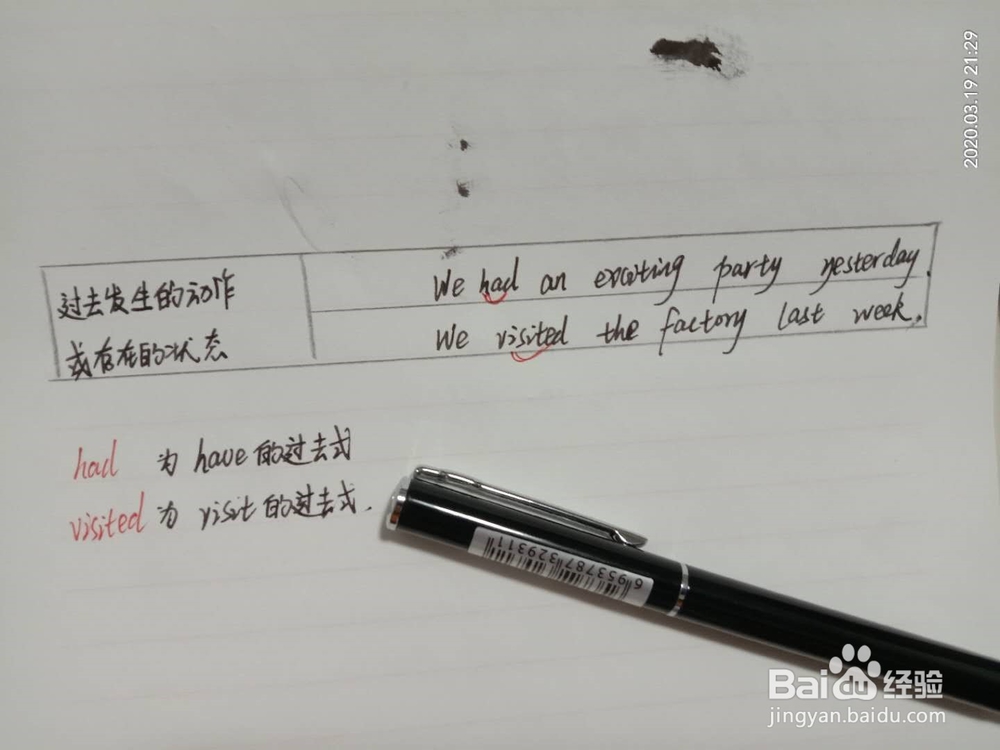 2020.03.19 21:29
过去发生的动作
或存在的状态
We had an exciting party yesterday.
We visited the factory last week.
had 为 have 的过去式
visited 为 visit 的过去式.
6953787329311
Baidu 经验
jingyan.baidu.com